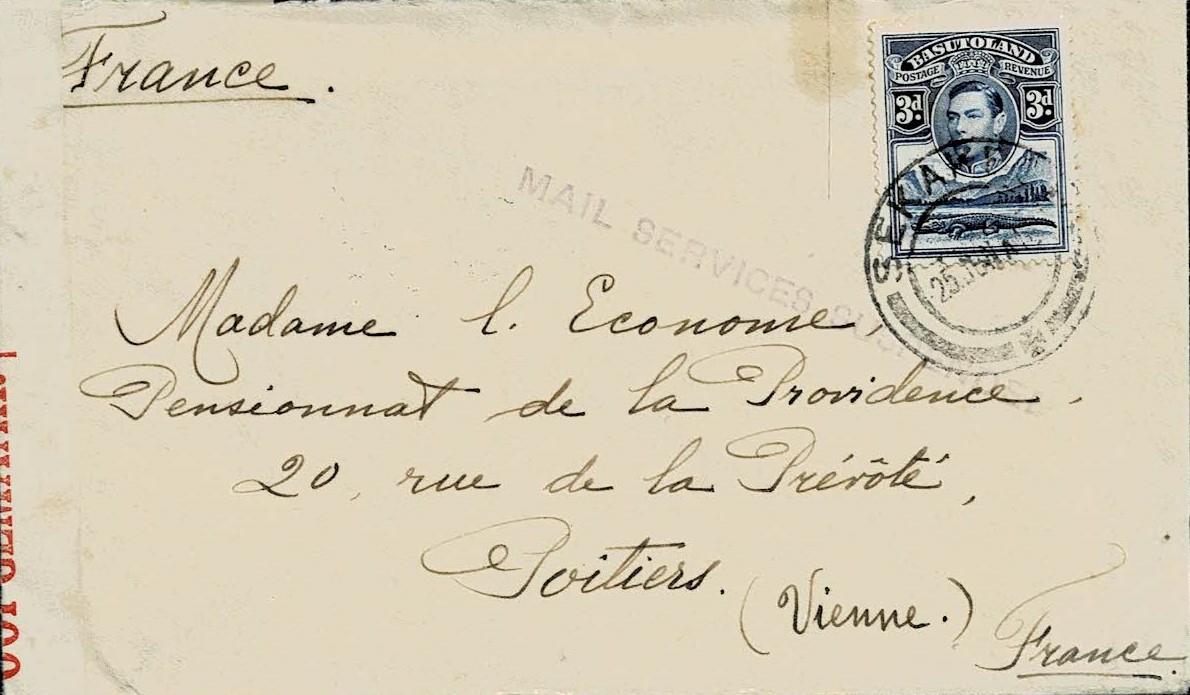 France.
BASUTOLAND
POSTAGE REVENUE
3d. 3d.
MAIL SERVICES
SEKAK
25
Madame l. Econome,
Pensionnat de la Providence.
20, rue de la Prévôté,
Poitiers.
(Vienne.)
France.